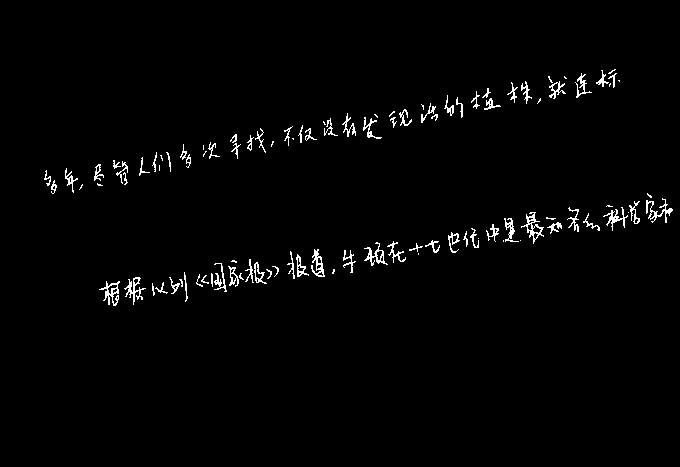 多年,尽管人们多次寻找,不仅没有发现活的植株,就连标
根据以列《国家报》报道,牛顿在十七世纪中是最知名的科学家和